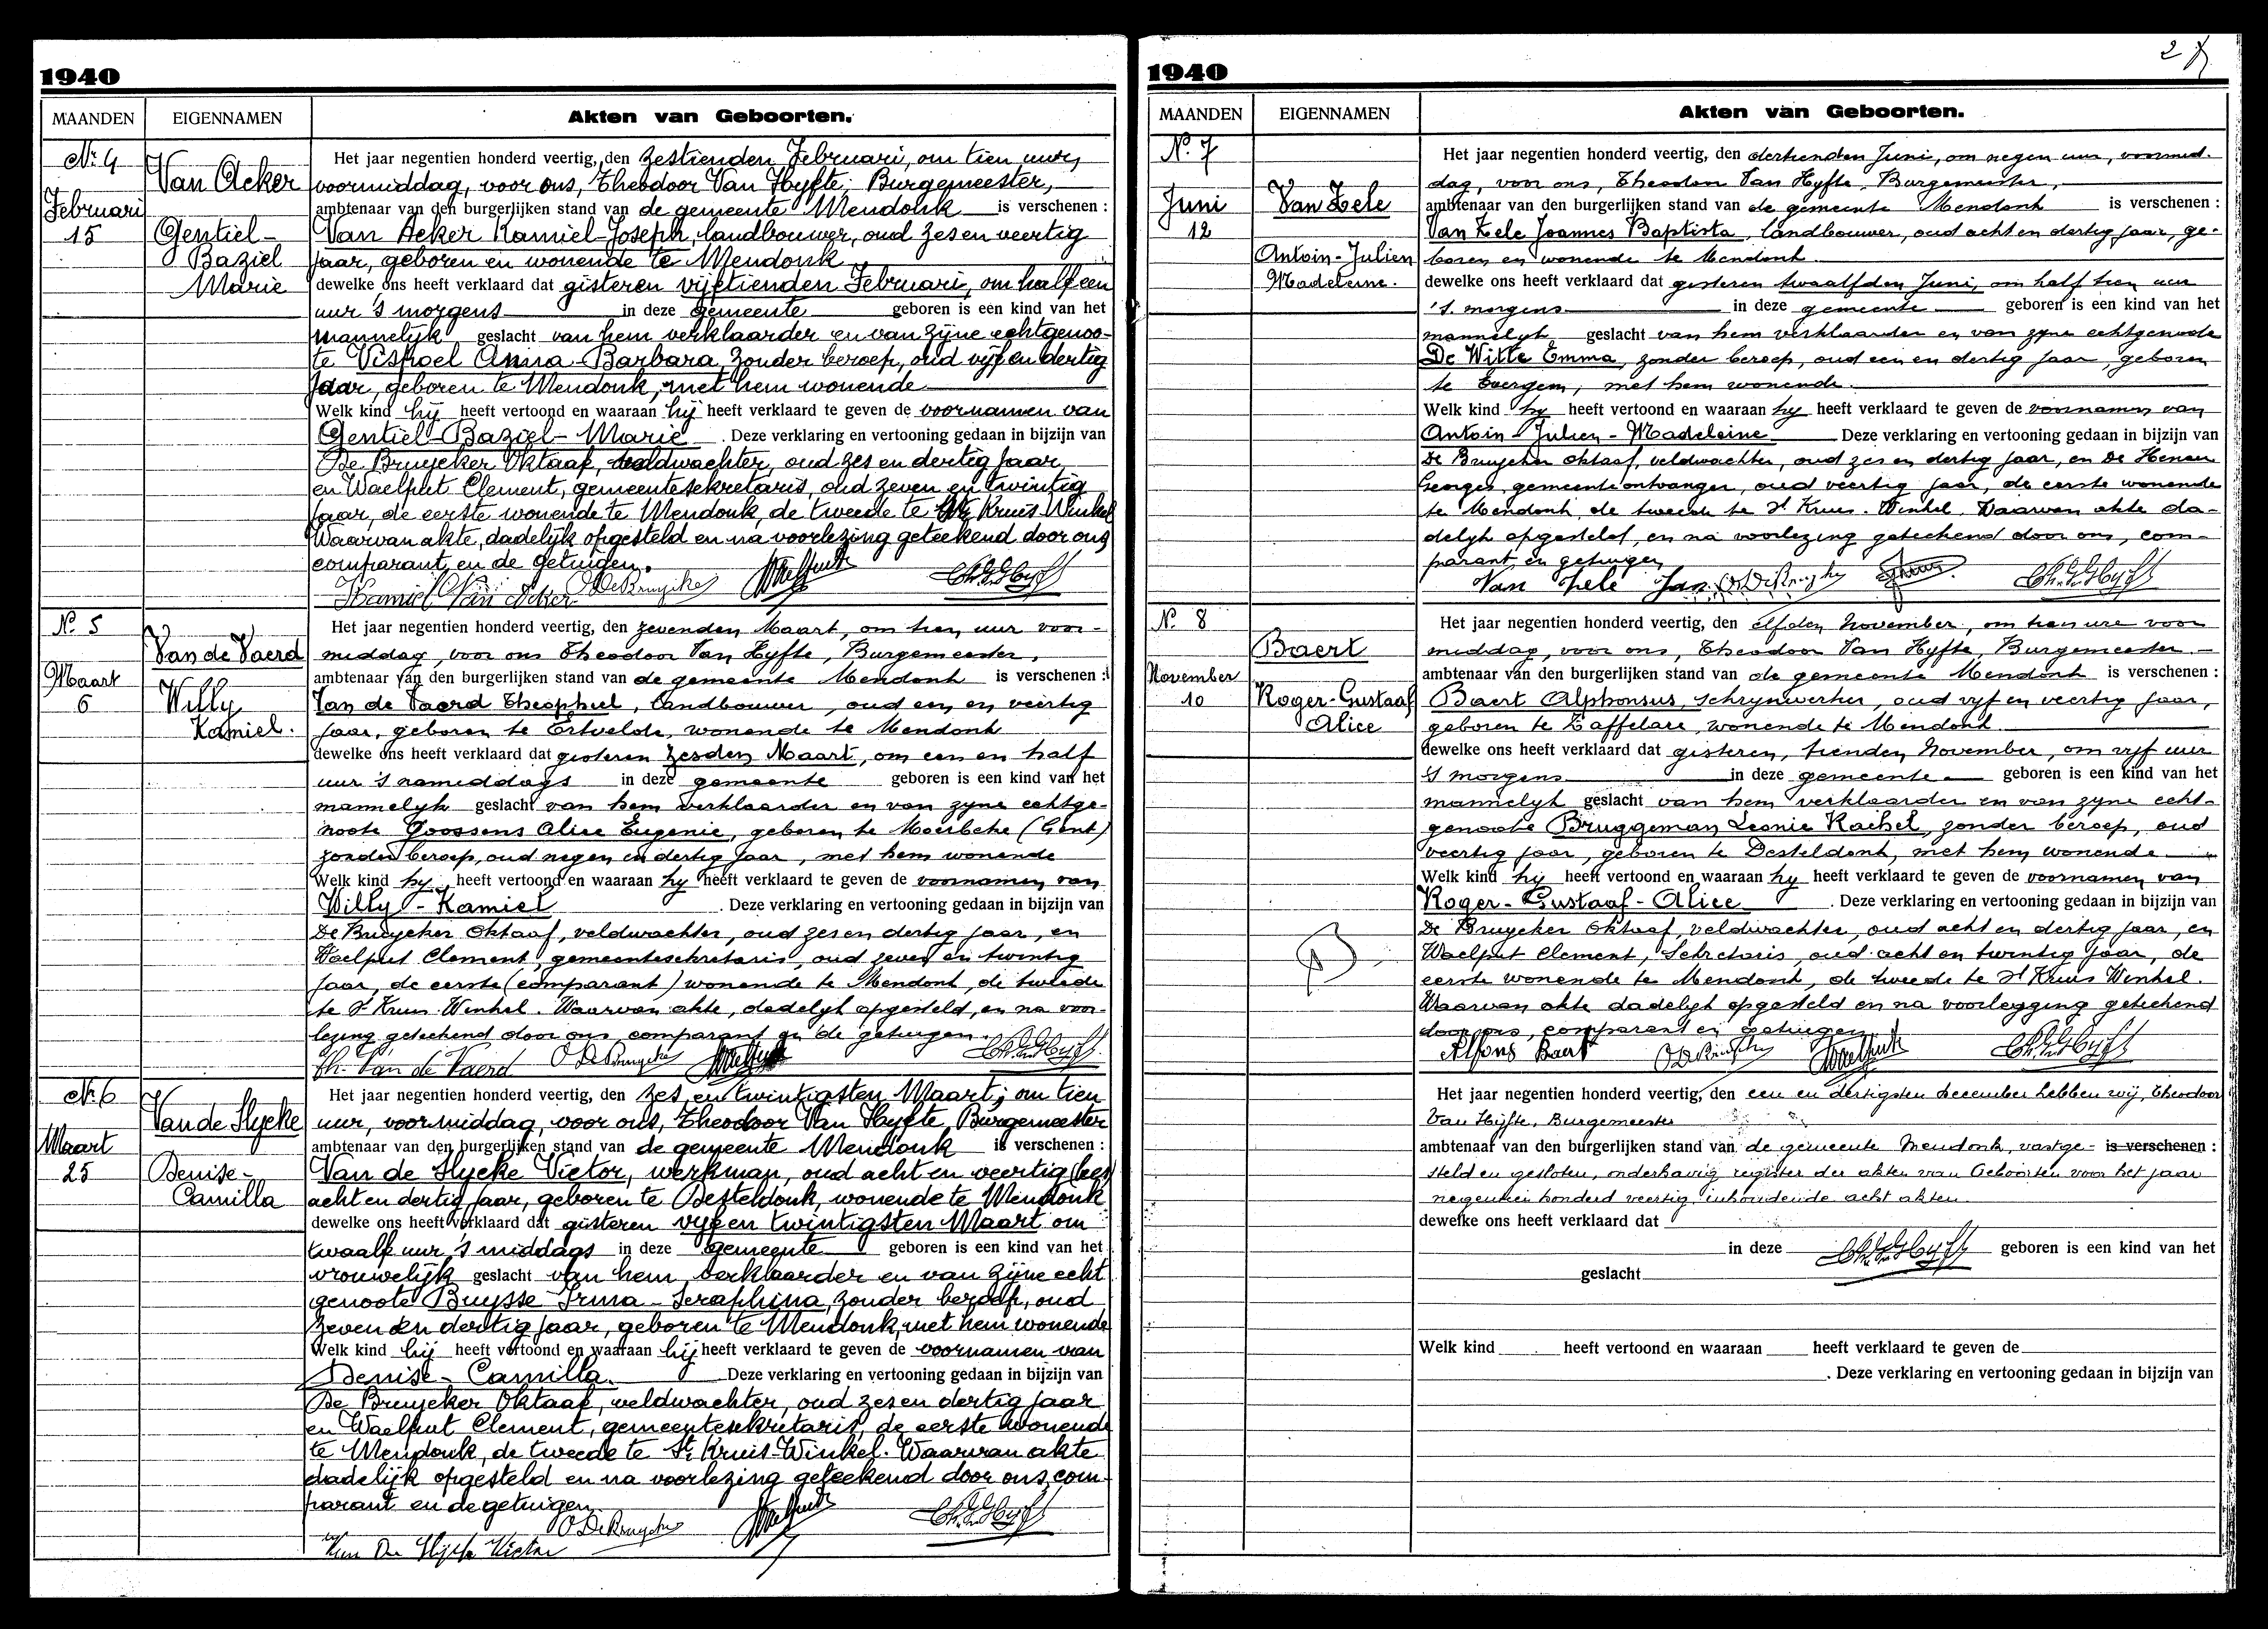 1940
MAANDEN EIGENNAMEN Akten van Geboorten.
Nr 4
Februari
15
Van Acker
Gentiel-
Baziel
Marie
Het jaar negentien honderd veertig, den zestienden Februari, om tien uur,
voormiddag, voor ons, Theodoor Van Hyfte, Burgemeester,
ambtenaar van den burgerlijken stand van de gemeente Mendonk is verschenen :
Van Acker Kamiel-Joseph, landbouwer, oud zes en veertig
jaar, geboren en wonende te Mendonk
dewelke ons heeft verklaard dat gisteren vijftienden Februari, om half een
uur 's morgens in deze gemeente geboren is een kind van het
mannelijk geslacht van hem verklaarder en van zijne echtgenoo-
te Vispoel Anna-Barbara, zonder beroep, oud vijf en dertig
jaar, geboren te Mendonk, met hem wonende
Welk kind hij heeft vertoond en waaraan hij heeft verklaard te geven de voornamen van
Gentiel-Baziel-Marie . Deze verklaring en vertooning gedaan in bijzijn van
De Bruycker Oktaaf, veldwachter, oud zes en dertig jaar
en Waelput Clement, gemeentesekretaris, oud zeven en twintig
jaar, de eerste wonende te Mendonk, de tweede te St Kruis Winkel
Waarvan akte, dadelijk opgesteld en na voorlezing geteekend door ons
comparant en de getuigen.
Kamiel Van Acker O De Bruycker
N° 5
Maart
6
Van de Vaerd
Willy
Kamiel.
Het jaar negentien honderd veertig, den zevenden Maart, om tien uur voor-
middag, voor ons Theodoor Van Hyfte, Burgemeester,
ambtenaar van den burgerlijken stand van de gemeente Mendonk is verschenen :
Van de Vaerd Theophiel, landbouwer, oud een en veertig
jaar, geboren te Ertvelde, wonende te Mendonk
dewelke ons heeft verklaard dat gisteren zesden Maart, om een en half
uur 's namiddags in deze gemeente geboren is een kind van het
mannelyk geslacht van hem verklaarder en van zyne echtge-
noote Goossens Alice Eugenie, geboren te Moerbeke (Gent)
zonder beroep, oud negen en dertig jaar, met hem wonende
Welk kind hy heeft vertoond en waaraan hy heeft verklaard te geven de voornamen van
Willy - Kamiel . Deze verklaring en vertooning gedaan in bijzijn van
De Bruycker Oktaaf, veldwachter, oud zes en dertig jaar, en
Waelput Clement, gemeentesekretaris, oud zeven en twintig
jaar, de eerste (comparant) wonende te Mendonk, de tweede
te St Kruis Winkel. Waarvan akte, dadelyk opgesteld, en na voor-
lezing geteekend door ons comparant en de getuigen.
Th. Van de Vaerd O De Bruycker
Nr 6
Maart
25
Van de Slycke
Denise-
Camilla
Het jaar negentien honderd veertig, den zes en twintigsten Maart, om tien
uur, voormiddag, voor ons, Theodoor Van Hyfte, Burgemeester
ambtenaar van den burgerlijken stand van de gemeente Mendonk is verschenen :
Van de Slycke Victor, werkman, oud acht en veertig (lees
acht en dertig jaar, geboren te Desteldonk, wonende te Mendonk
dewelke ons heeft verklaard dat gisteren vijf en twintigsten Maart om
twaalf uur 's middags in deze gemeente geboren is een kind van het
vrouwelijk geslacht van hem verklaarder en van zijne echt
genoote Buysse Irma-Seraphina, zonder beroep, oud
zeven en dertig jaar, geboren te Mendonk, met hem wonende
Welk kind hij heeft vertoond en waaraan hij heeft verklaard te geven de voornamen van
Denise- Camilla. Deze verklaring en vertooning gedaan in bijzijn van
De Bruycker Oktaaf, veldwachter, oud zes en dertig jaar
en Waelput Clement, gemeentesekretaris, de eerste wonende
te Mendonk, de tweede te St Kruis-Winkel. Waarvan akte
dadelijk opgesteld en na voorlezing geteekend door ons, com-
parant en de getuigen
O De Bruycker
Van De Slycke Victor
1940
MAANDEN EIGENNAMEN Akten van Geboorten.
N° 7
Juni
12
Van Zele
Antoin-Julien
Madeleine.
Het jaar negentien honderd veertig, den dertienden Juni, om negen uur, voormid-
dag, voor ons, Theodoor Van Hyfte, Burgemeester,
ambtenaar van den burgerlijken stand van de gemeente Mendonk is verschenen :
Van Zele Joannes Baptista, landbouwer, oud acht en dertig jaar, ge-
boren en wonende te Mendonk
dewelke ons heeft verklaard dat gisteren twaalfden Juni, om half tien uur
's morgens in deze gemeente geboren is een kind van het
mannelyk geslacht van hem verklaarder en van zyne echtgenoote
De Witte Emma, zonder beroep, oud een en dertig jaar, geboren
te Evergem, met hem wonende.
Welk kind hy heeft vertoond en waaraan hy heeft verklaard te geven de voornamen van
Antoin - Julien - Madeleine Deze verklaring en vertooning gedaan in bijzijn van
De Bruycker Oktaaf, veldwachter, oud zes en dertig jaar, en De Henau
Georges, gemeenteontvanger, oud veertig jaar, de eerste wonende
te Mendonk, de tweede te St Kruis-Winkel. Waarvan akte da-
delyk opgesteld, en na voorlezing geteekend door ons, com-
parant, en getuigen
Van Zele Jan O De Bruycker
N° 8
November
10
Baert
Roger-Gustaaf
Alice
Het jaar negentien honderd veertig, den elfden November, om tien ure voor
middag, voor ons, Theodoor Van Hyfte, Burgemeester.
ambtenaar van den burgerlijken stand van de gemeente Mendonk is verschenen :
Baert Alphonsus, schrynwerker, oud vyf en veertig jaar,
geboren te Zaffelare, wonende te Mendonk
dewelke ons heeft verklaard dat gisteren, tienden November, om vyf uur
's morgens in deze gemeente geboren is een kind van het
mannelyk geslacht van hem verklaarder en van zyne echt-
genoote Bruggeman Leonie Rachel, zonder beroep, oud
veertig jaar, geboren te Desteldonk, met hem wonende
Welk kind hij heeft vertoond en waaraan hy heeft verklaard te geven de voornamen van
Roger - Gustaaf - Alice . Deze verklaring en vertooning gedaan in bijzijn van
De Bruycker Oktaaf, veldwachter, oud acht en dertig jaar, en
Waelput Clement, Sekretaris, oud acht en twintig jaar, de
eerste wonende te Mendonk, de tweede te St Kruis Winkel.
Waarvan akte dadelyk opgesteld en na voorlegging geteekend
door ons, comparant en getuigen
Alfons Baert O De Bruycker
Het jaar negentien honderd veertig, den een en dertigsten december hebben wij, Theodoor
Van Hyfte, Burgemeester
ambtenaar van den burgerlijken stand van de gemeente Mendonk, vastge- is verschenen :
steld en gesloten, onderhavig register der akten van Geboorten voor het jaar
negentien honderd veertig, inhoudende acht akten
dewelke ons heeft verklaard dat
in deze geboren is een kind van het
geslacht
Welk kind heeft vertoond en waaraan heeft verklaard te geven de
. Deze verklaring en vertooning gedaan in bijzijn van